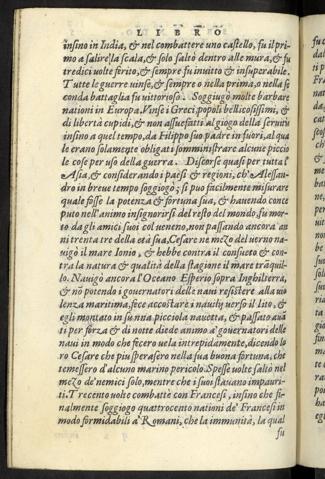 LIBRO
insino in India, & nel combattere uno castello, fu il pri-
mo a salire la scala, & solo saltò dentro alle mura, & fu
tredici volte ferito, & sempre fu invitto & insuperabile.
Tutte le guerre uinse, & sempre o nella prima, o nella se
conda battaglia fu uittorioso. Soggiugo molte barbare
nationi in Europa. Vinse i Greci popoli bellicosissimi, &
di libertà cupidi, & non assuefatti al giogo della seruitu
insino a quel tempo, da Filippo suo padre in fuori, al qua
le erano solamente obligati i somministrare alcune piccio
le cose per uso della guerra. Discorse quasi per tutta l'
Asia, & considerando i paesi & regioni, ch'Alessan-
dro in breve tempo soggiogò; si puo facilmente misurare
quale fosse la potenza & fortuna sua, & havendo conce
puto nell'animo insignorirsi del resto del mondo, fu mor-
to da gli amici suoi col ueneno, non passando ancora an
ni trenta tre della età sua, Cesare ne mezo del uerno na-
uigò il mare Ionio, & hebbe contra il consueto & con-
tra la natura & qualità della stagione il mare träquil-
lo. Nauigò ancora l'Oceano Esperio sopra Inghilterra,
& nō potendo i governatori delle naui resistere alla uio
lenza maritima, fece accostare i nauily uerso il lito, &
egli montato in su una picciola navetta, & passato auā
ti per forza & di notte diede animo a' governatori delle
naui in modo che fecero uela intrepidamente, dicendo lo
ro Cesare che piu sperasero nella sua buona fortuna, che
temessero d'alcuno marino pericolo. Spesse uolte saltò nel
mezo de' nemici solo, mentre che i suoi stauano impauri-
ti. Trecento uolte combattè con Francesi, insino che fi-
nalmente soggiogo quattrocento nationi de' Francesi in
modo formidabili a' Romani, che la immunità, la qual
fu